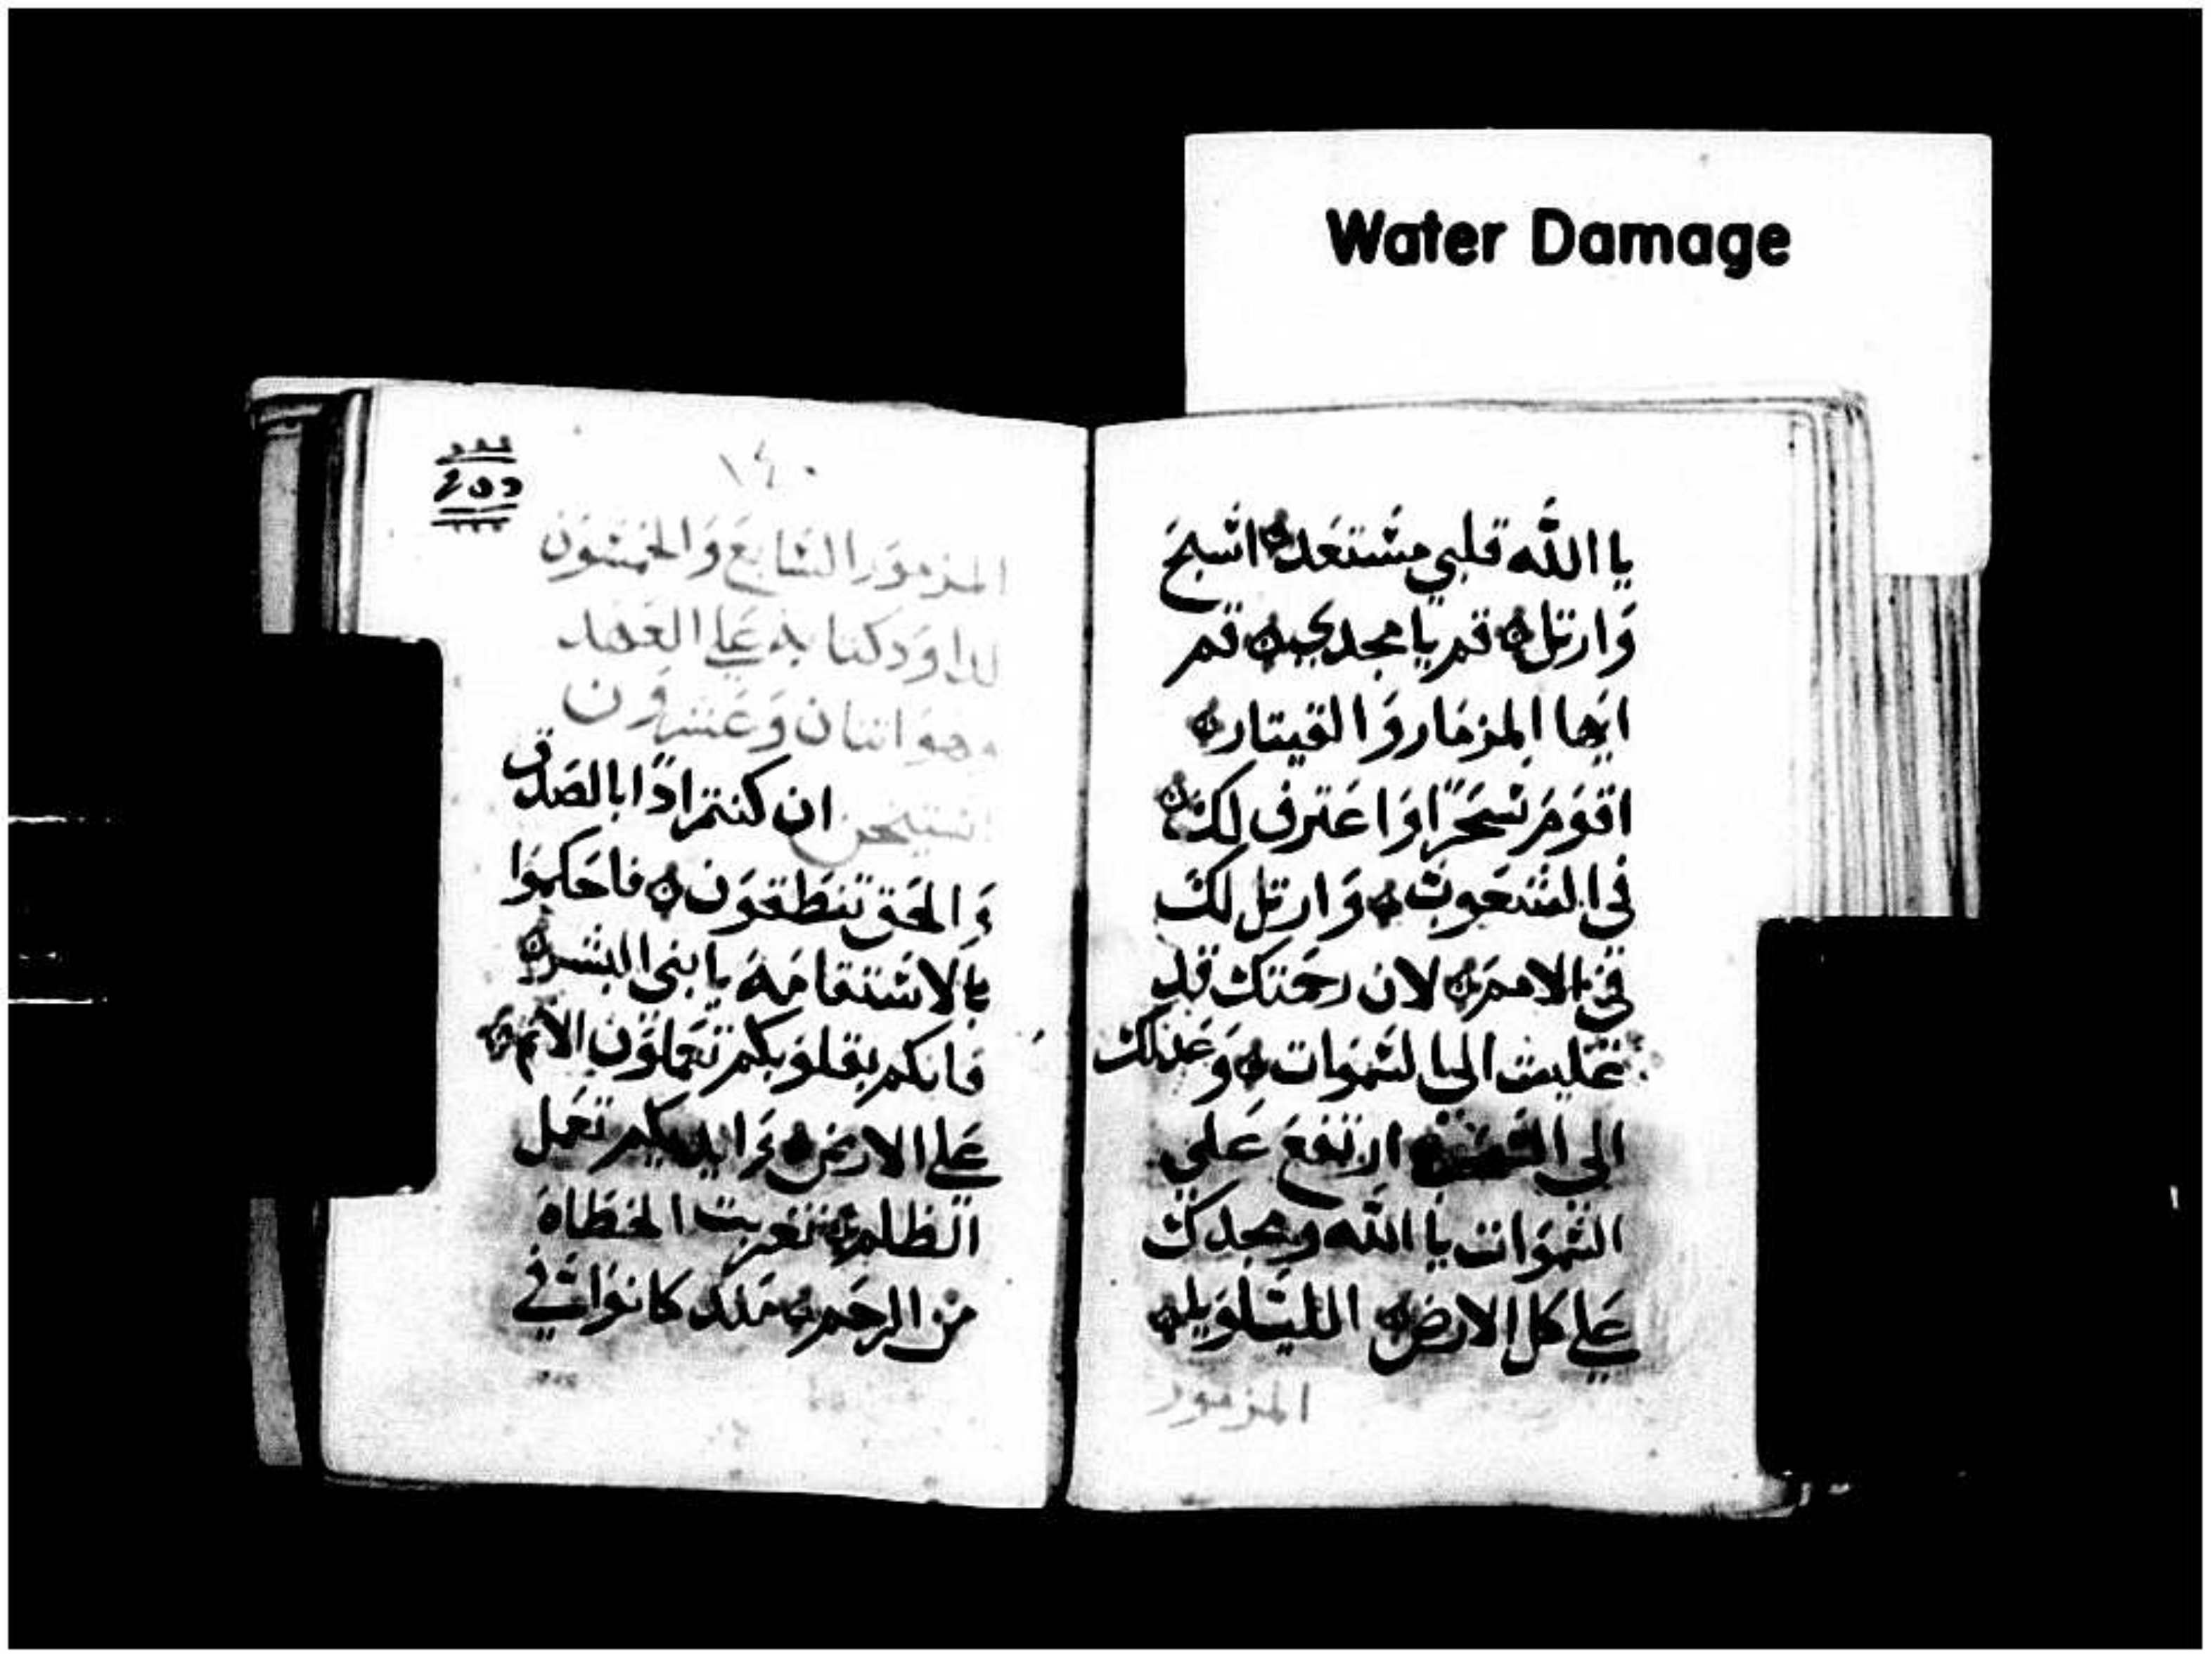 Water Damage
يا الله قلبي مستعد اسبح
وارتل قم يا مجدي قم
ايها المزمار والقيتار
اقوم سحرًا واعترف لك
في الشعوب وارتل لك
في الامم لان رحمتك قد
عليت الي السموات وعدلك
الي ارتفع علي
السموات يا الله ومجدك
علي كل الارض الليلويا
المزمور
١٤٠
المزمور السابع والخمسون
لداود كتابه علي العهد
وهو اتنان وعشرون
ان كنتم ادًا بالصدق
والحق تنطقون فاحكموا
بالاستقامة يا بني البشر
فانكم بقلوبكم تعملون الاتم
علي الارض وايديكم تعمل
الظلم تغربت الخطاه
من الرحم مند كانوا في